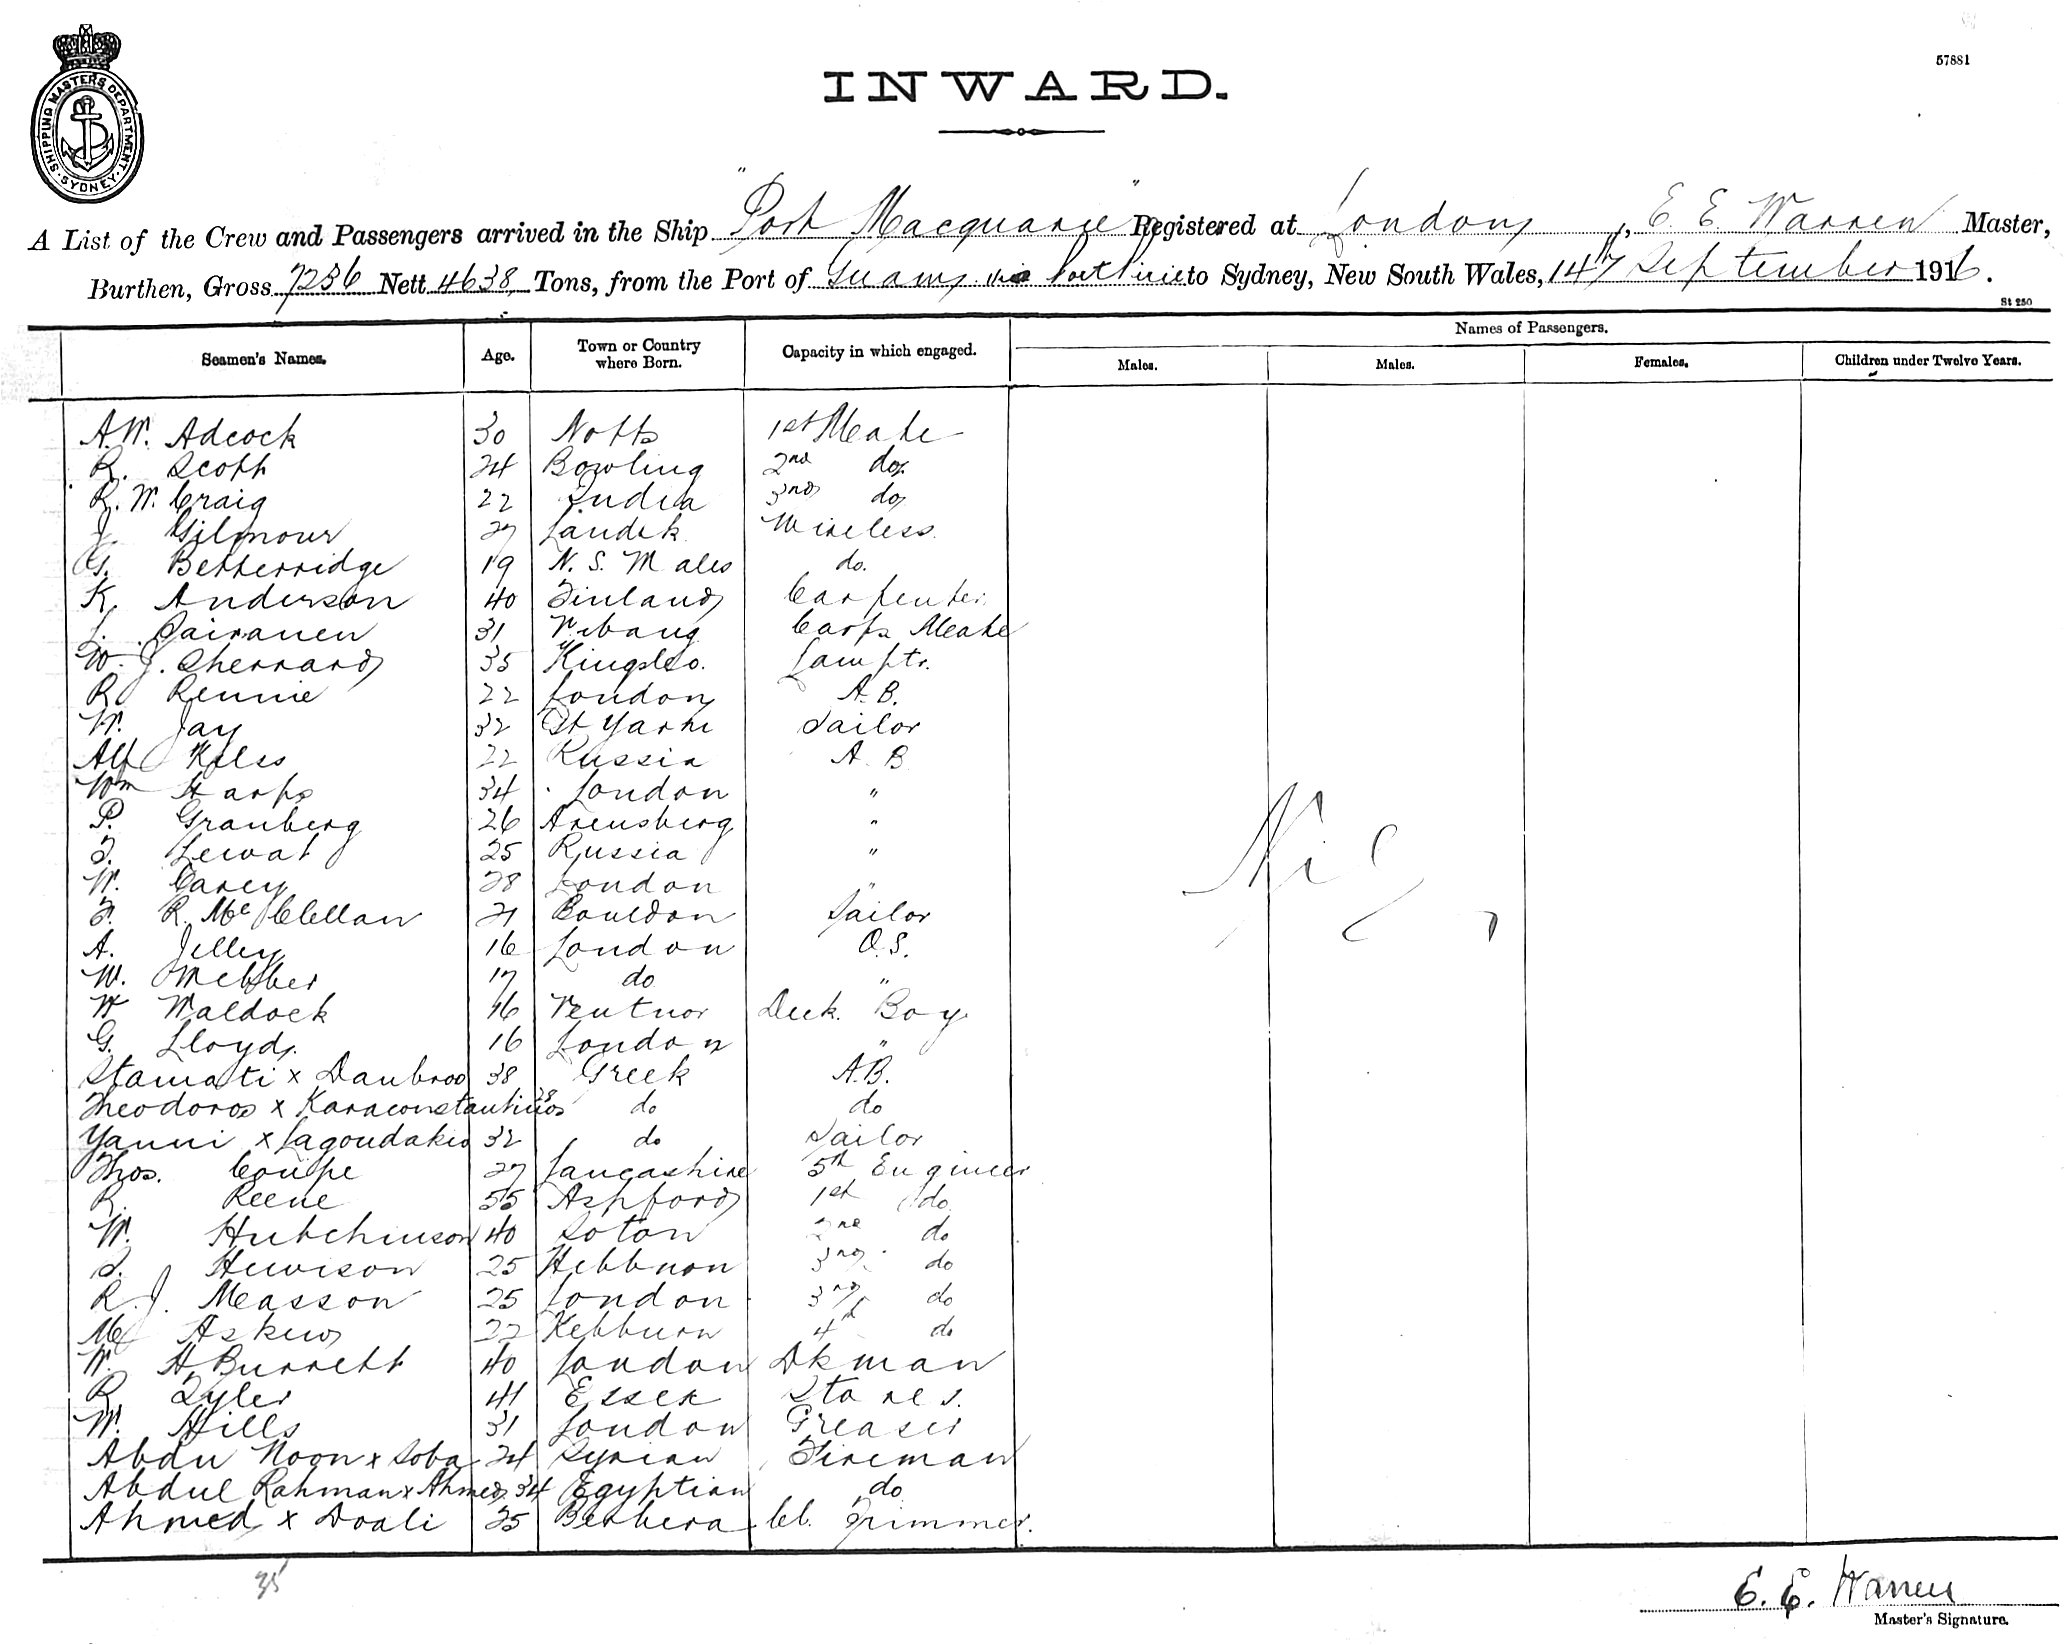 57881
SHIPPING MASTERS DEPARTMENT
SYDNEY
INWARD.
A List of the Crew and Passengers arrived in the Ship "Port Macquarie" Registered at London, E. E. Warren Master,
Burthen, Gross 7236 Nett 4638 Tons, from the Port of Guam via Port Pirie to Sydney, New South Wales, 14th September 1916.
St 250
Seamen's Names. Age. Town or Country where Born. Capacity in which engaged. Names of Passengers.
Males. Males. Females. Children under Twelve Years.
A. W. Adcock 30 Notts 1st Mate
R. Scott 24 Bowling 2nd do
R. W. Craig 22 India 3rd do
J. Gilmour 27 Wireless
G. Betterridge 19 N. S. Wales do.
K. Anderson 40 Finland Carpenter
Sairanen 31 Carps Mate
W. J. Sherrard 35 Lamptr.
R. Rennie 22 London A.B.
W. Jay 32 Gt Yarm Sailor
Alf 22 Russia A.B
Wm Harps 34 London "
P. Granberg 26 Arensberg "
Lewat 25 Russia "
W. Carey 28 London "
F. R. McClellan 21 Sailor
A. Jelley 16 London O.S.
W. Webber 17 do "
H Waldock 16 Ventnor Deck Boy
G. Lloyd. 16 London "
Stamati x Daubroo 38 Greek A.B.
Theodoros x Karaconstantinos 28 do do
Yanni x Lagoudakis 32 do Sailor
Thos. Coupe 27 Lancashire 5th Engineer
R. Keene 55 Ashford 1st do
W. Hutchinson 40 Soton 2nd do
S. Hewison 25 Hebburn 3rd do
R. J. Measson 25 London 3rd do
M Askew 22 Hebburn 4th do
W. H. Burrett 40 London Dkman
R Tyler 41 Essex Stores.
W. Hills 31 London Greaser
Abdu Noon x Soba 24 Syrian Fireman
Abdul Rahman x Ahmed 34 Egyptian do
Ahmed x Doali 25 Berbera Cl. Trimmer.
Nil
35
E. E. Warren
Master's Signature.